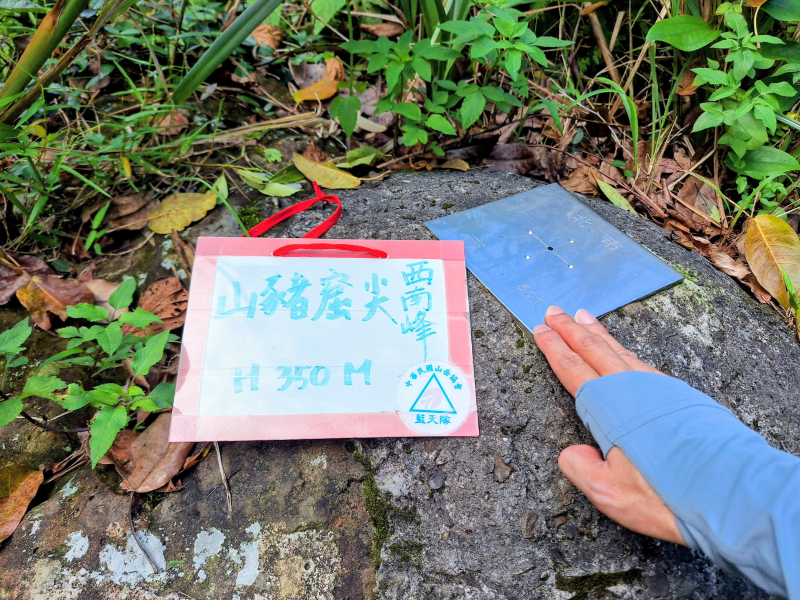 山豬窟尖
西南峰
H 350 M
中華民國山岳協會
藍天隊
北市